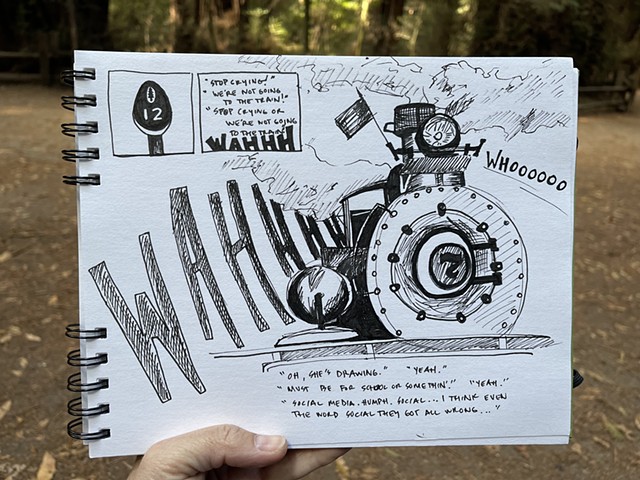 0
12
"STOP CRYING!"
"WE'RE NOT GOING
TO THE TRAIN!"
"STOP CRYING OR
WE'RE NOT GOING
TO THE TRAIN"
WAHHH
WHOOOOOO
WAHHWAH
2
"OH, SHE'S DRAWING." "YEAH."
"MUST BE FOR SCHOOL OR SOMETHIN'." "YEAH."
"SOCIAL MEDIA. HUMPH. SOCIAL... I THINK EVEN
THE WORD SOCIAL THEY GOT ALL WRONG..."